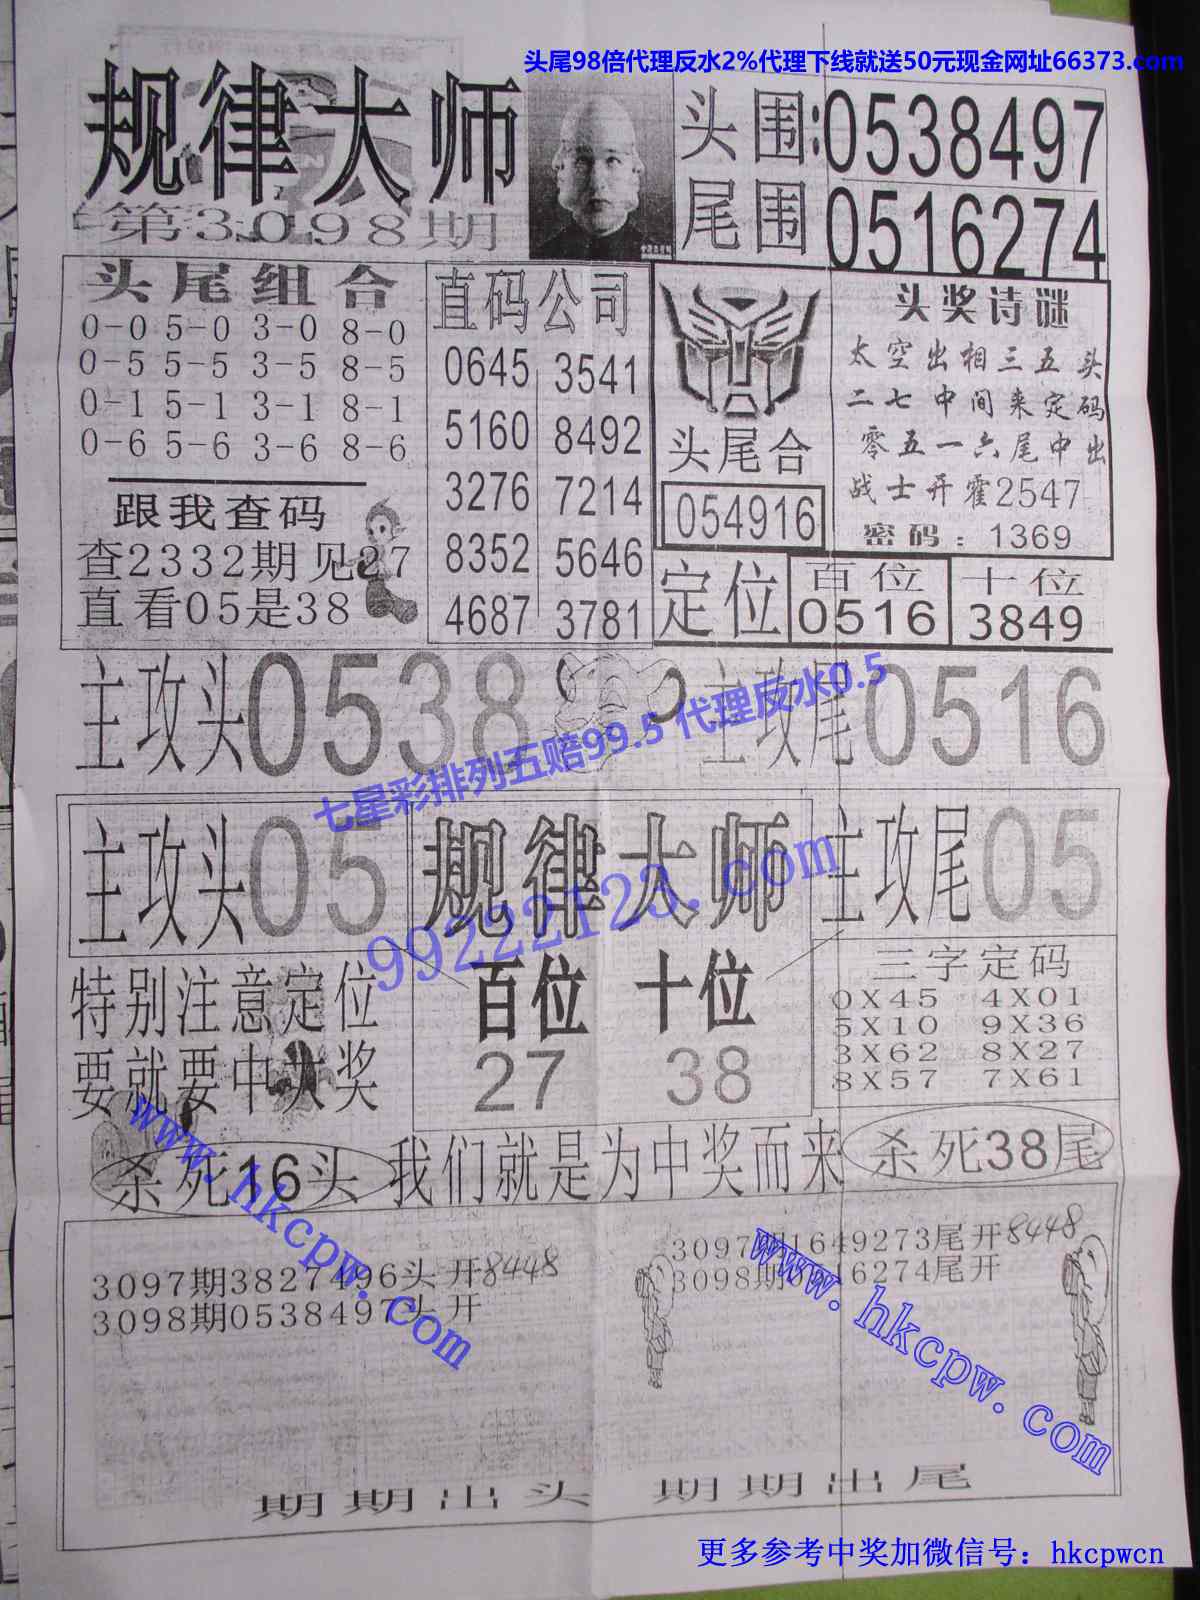 头尾98倍代理反水2%代理下线就送50元现金网址66373.com
规律大师
第3098期
头围:0538497
尾围0516274
头尾组合
0-0 5-0 3-0 8-0
0-5 5-5 3-5 8-5
0-1 5-1 3-1 8-1
0-6 5-6 3-6 8-6
跟我查码
查2332期见27
直看05是38
直码公司
0645 3541
5160 8492
3276 7214
8352 5646
4687 3781
头尾合
054916
头奖诗谜
太空出相三五头
二七中间来定码
零五一六尾中出
战士开霍2547
密码:1369
定位
百位
0516
十位
3849
主攻头0538
主攻尾0516
七星彩排列五赔99.5 代理反水0.5
主攻头05
规律大师
主攻尾05
99222123.com
特别注意定位
要就要中大奖
百位 十位
27 38
三字定码
0X45 4X01
5X10 9X36
3X62 8X27
8X57 7X61
www.hkcpw.com
杀死16头
我们就是为中奖而来
杀死38尾
3097期3827496头开8448
3098期0538497头开
3097期1649273尾开8448
3098期0516274尾开
www.hkcpw.com
期期出头 期期出尾
更多参考中奖加微信号:hkcpwcn